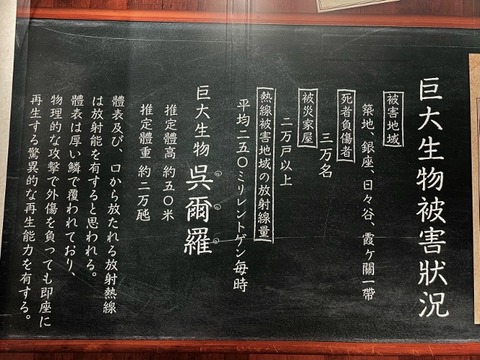 巨大生物被害狀況
被害地域
築地、銀座、日々谷、霞ヶ關一帶
死者負傷者
三万名
被災家屋
二万戸以上
熱線被害地域の放射線量
平均二五〇ミリレントゲン毎時
巨大生物 呉爾羅
推定體高 約五〇米
推定體重 約二万瓲
體表及び、口から放たれる放射熱線
は放射能を有すると思われる。
體表は厚い鱗で覆われており、
物理的な攻撃で外傷を負っても即座に
再生する驚異的な再生能力を有する。